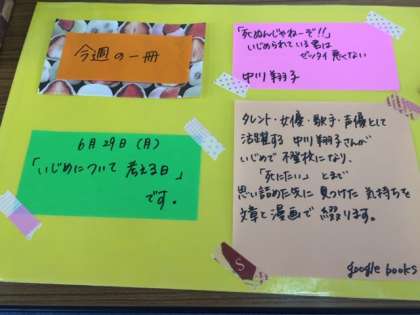 今週の一冊
「死ぬんじゃねーぞ!!」
いじめられている君は
ゼッタイ悪くない
中川翔子
6月29日(月)
「いじめについて考える日」
です。
タレント・女優・歌手・声優として
活躍する中川翔子さんが
いじめで不登校になり、
「死にたい」とまで
思い詰めた先に見つけた気持ちを
文章と漫画で綴ります。
google books